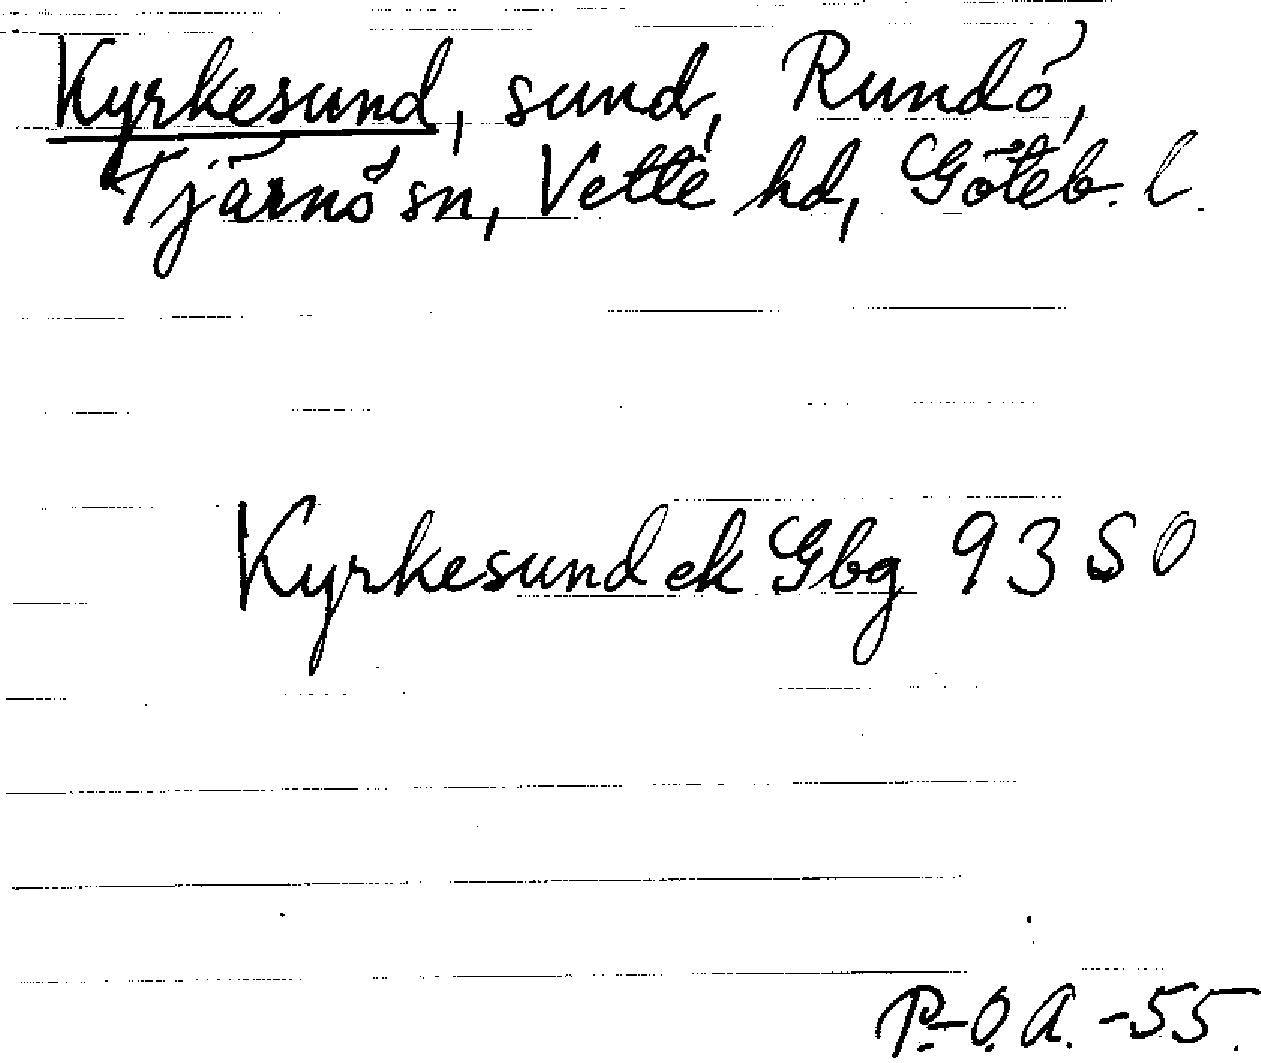 Kyrkesund, sund, Rundö,
Tjärnö sn, Vette hd, Göteb. l.
Kyrkesund ek Gbg 93 SO
P.-O. A. -55.